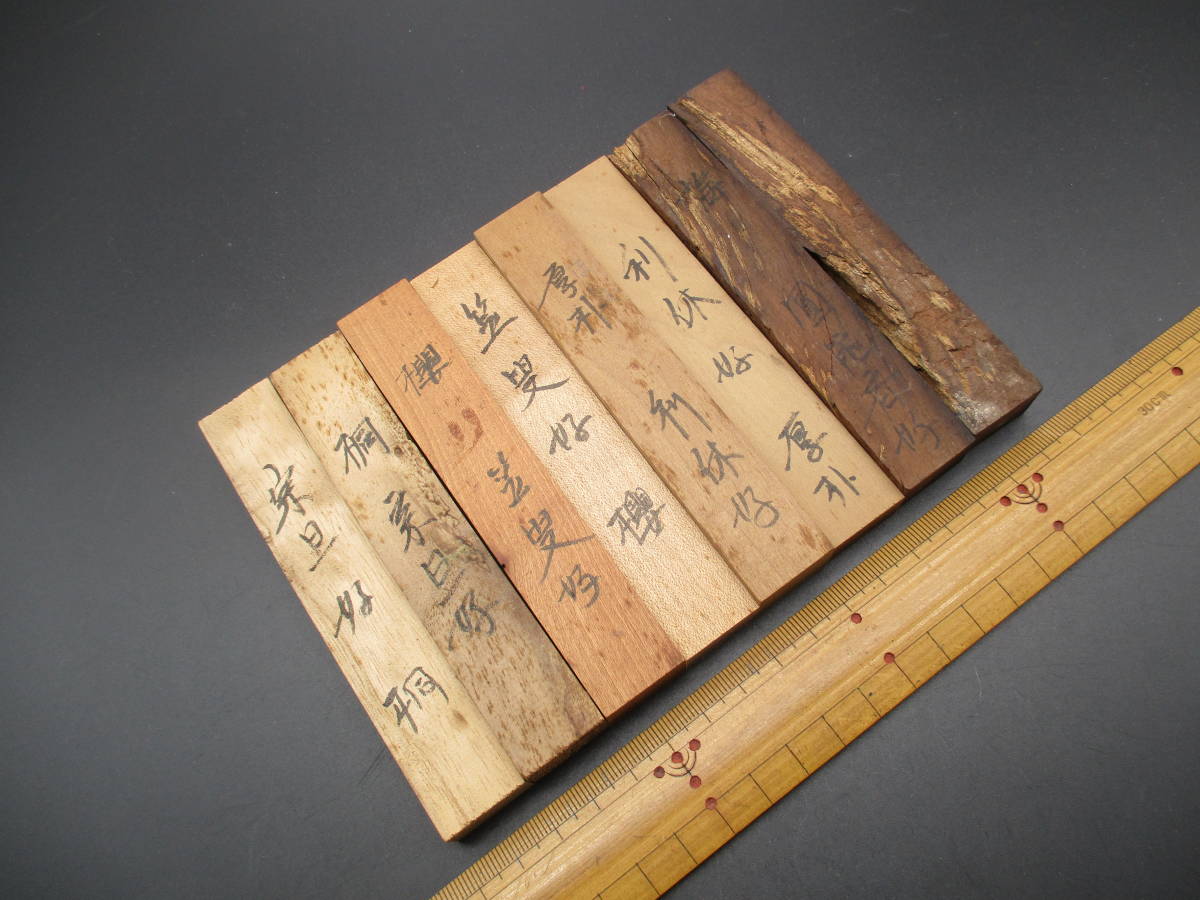 宗旦好 桐
桐 宗旦好
櫻 笠叟好
笠叟好 櫻
厚朴 利休好
利休好 厚朴
梅 圓能斎好
30CM